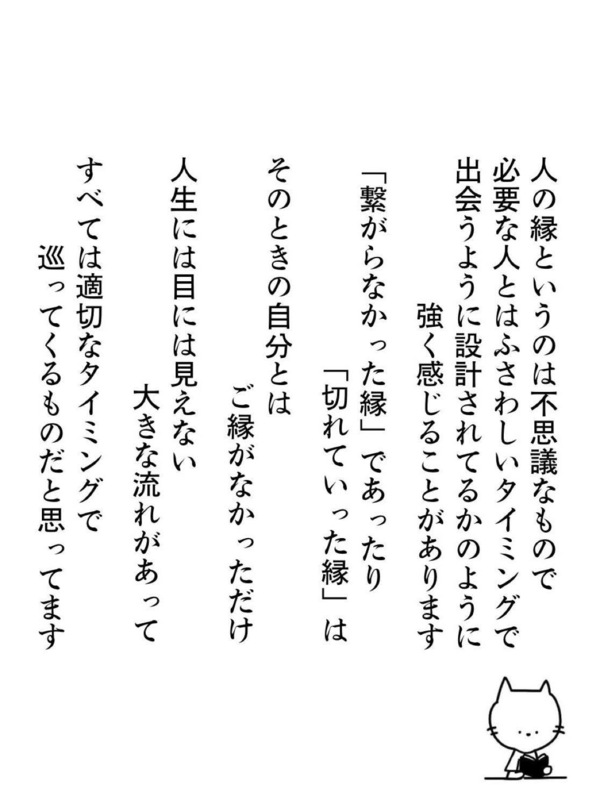 人の縁というのは不思議なもので
必要な人とはふさわしいタイミングで
出会うように設計されてるかのように
強く感じることがあります
「繋がらなかった縁」であったり
「切れていった縁」は
そのときの自分とは
ご縁がなかっただけ
人生には目には見えない
大きな流れがあって
すべては適切なタイミングで
巡ってくるものだと思ってます